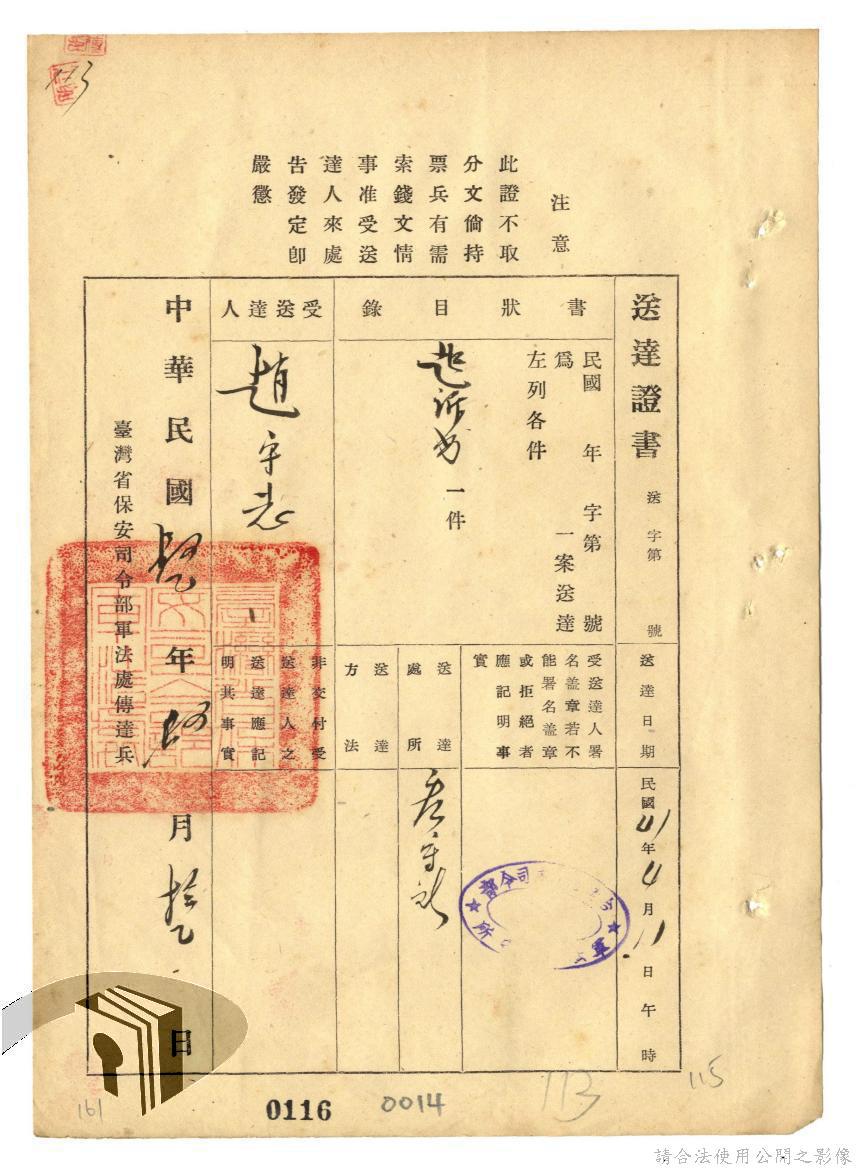 注意
此證不取
分文倘持
票兵有需
索錢文情
事准受送
達人來處
告發定卽
嚴懲
送達證書
送 字第 號
送達日期
民國41年4月11日午時
書狀目錄
民國 年 字第 號
爲 一案送達
左列各件
起訴书一件
受送達人署
名蓋章若不
能署名蓋章
或拒絕者
應記明事
實
送達處所
送達方法
受送達人
趙守志
非交付受
送達人之
送達應記
明其事實
中華民國 年 月 日
臺灣省保安司令部軍法處傳達兵
0116
0014
113
115
161
請合法使用公開之影像